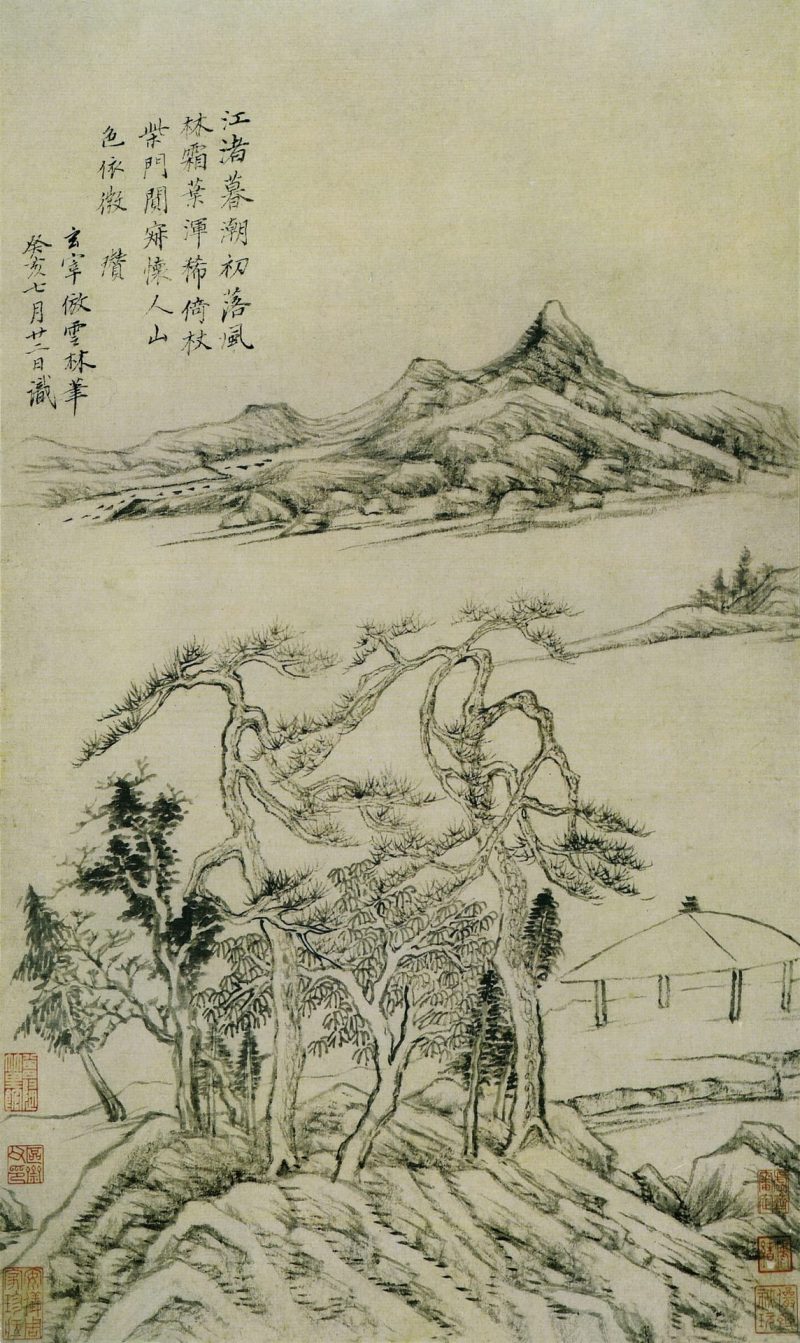 江渚暮潮初落風
林霜葉渾稀倚杖
柴門闃寂懷人山
色依微 瓚
玄宰倣雲林筆
癸亥七月廿二日識